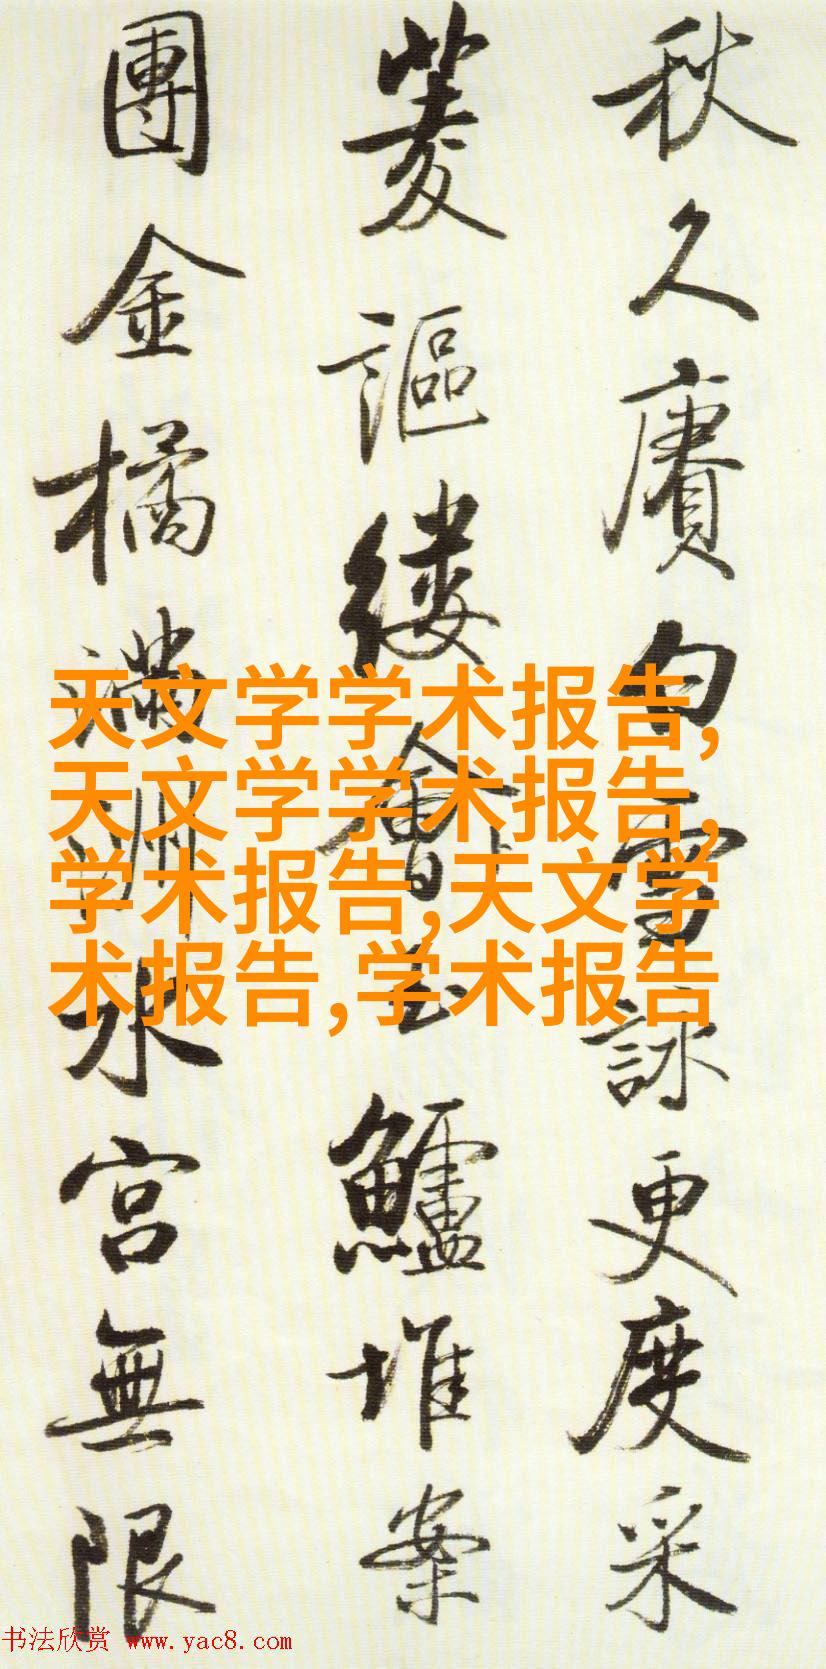 秋久賡白雪詠更度采
菱謳縷會玉鱸堆案
團金橘滿洲水宮無限
天文学学术报告,
天文学学术报告,
学术报告,天文学
术报告,学术报告
书法欣赏 www.yac8.com